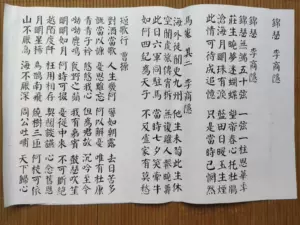 錦瑟 李商隱
錦瑟無端五十弦 一弦一柱思華年
莊生曉夢迷蝴蝶 望帝春心托杜鵑
滄海月明珠有淚 藍田日暖玉生煙
此情可待成追憶 只是當時已惘然
馬嵬 其二 李商隱
海外徒聞更九州 他生未卜此生休
空聞虎旅傳宵柝 無復雞人報曉籌
此日六軍同駐馬 當時七夕笑牽牛
如何四紀為天子 不及盧家有莫愁
短歌行 曹操
對酒當歌 人生幾何 譬如朝露 去日苦多
慨當以慷 憂思難忘 何以解憂 唯有杜康
青青子衿 悠悠我心 但為君故 沉吟至今
呦呦鹿鳴 食野之蘋 我有嘉賓 鼓瑟吹笙
明明如月 何時可掇 憂從中來 不可斷絕
越陌度阡 枉用相存 契闊談讌 心念舊恩
月明星稀 烏鵲南飛 繞樹三匝 何枝可依
山不厭高 海不厭深 周公吐哺 天下歸心